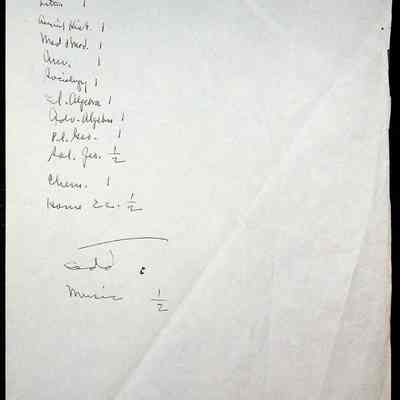 Latin 1
Ancient Hist. 1
Med & Mod. 1
Amer. 1
Sociology 1
El. Algebra 1
Adv. Algebra 1
Pl. Geo. 1
Sol. Geo. 1/2
Chem. 1
Home Ec. 1/2
add :
Music 1/2